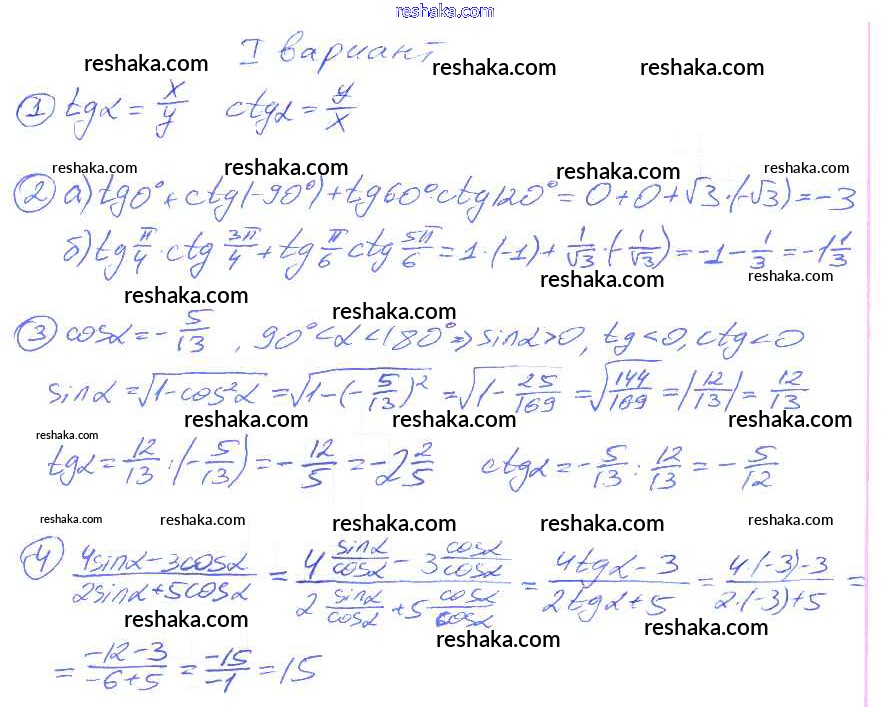 reshaka.com
I вариант
reshaka.com reshaka.com reshaka.com
① tgα = x/y ctgα = y/x
reshaka.com reshaka.com reshaka.com reshaka.com
② а) tg0° + ctg(-90°) + tg60°·ctg120° = 0 + 0 + √3·(-√3) = -3
б) tg π/4 · ctg 3π/4 + tg π/6 ctg 5π/6 = 1·(-1) + 1/√3·(-1/√3) = -1 - 1/3 = -1 1/3
reshaka.com reshaka.com reshaka.com
reshaka.com
③ cosα = - 5/13, 90° < α < 180° ⇒ sinα > 0, tg < 0, ctg < 0
sinα = √(1-cos²α) = √(1-(-5/13)²) = √(1 - 25/169) = √(144/169) = |12/13| = 12/13
reshaka.com reshaka.com reshaka.com
reshaka.com
tgα = 12/13 : (-5/13) = - 12/5 = -2 2/5 ctgα = - 5/13 : 12/13 = - 5/12
reshaka.com reshaka.com reshaka.com reshaka.com reshaka.com
④ (4sinα - 3cosα)/(2sinα + 5cosα) = (4 sinα/cosα - 3 cosα/cosα)/(2 sinα/cosα + 5 cosα/cosα) = (4tgα - 3)/(2tgα + 5) = (4·(-3) - 3)/(2·(-3) + 5) =
reshaka.com reshaka.com reshaka.com
= (-12 - 3)/(-6 + 5) = -15/-1 = 15